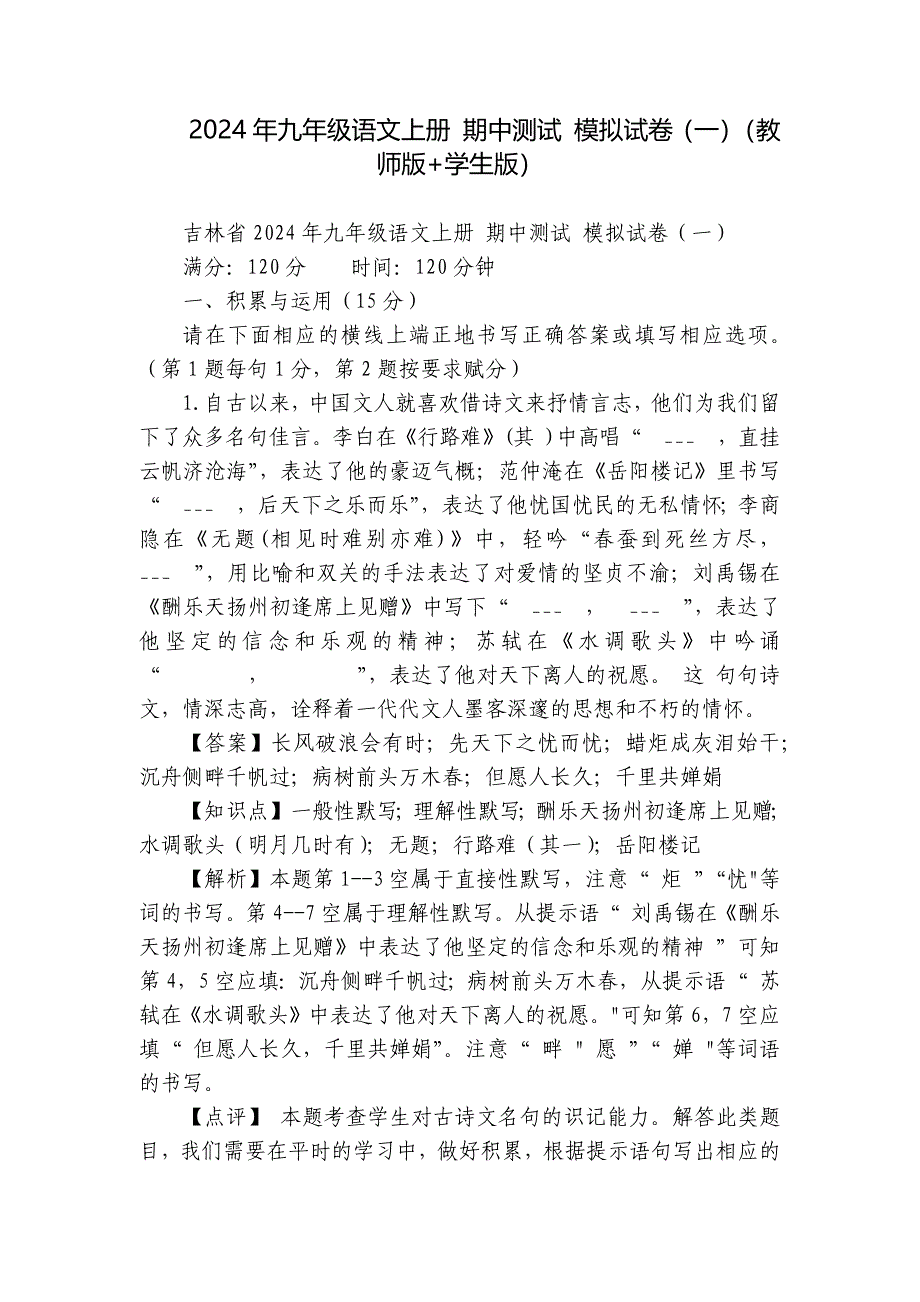 2024年九年级语文上册 期中测试 模拟试卷（一）（教
师版+学生版）
吉林省2024年九年级语文上册 期中测试 模拟试卷（一）
满分：120分 时间：120分钟
一、积累与运用（15分）
请在下面相应的横线上端正地书写正确答案或填写相应选项。
（第1题每句1分，第2题按要求赋分）
1.自古以来，中国文人就喜欢借诗文来抒情言志，他们为我们留
下了众多名句佳言。李白在《行路难》(其 )中高唱“ ___ ，直挂
云帆济沧海”，表达了他的豪迈气概；范仲淹在《岳阳楼记》里书写
“ ___ ，后天下之乐而乐”，表达了他忧国忧民的无私情怀；李商
隐在《无题(相见时难别亦难)》中，轻吟“春蚕到死丝方尽，
___ ”，用比喻和双关的手法表达了对爱情的坚贞不渝；刘禹锡在
《酬乐天扬州初逢席上见赠》中写下“ ___ ， ___ ”，表达了
他坚定的信念和乐观的精神；苏轼在《水调歌头》中吟诵
“ ， ”，表达了他对天下离人的祝愿。 这 句句诗
文，情深志高，诠释着一代代文人墨客深邃的思想和不朽的情怀。
【答案】长风破浪会有时；先天下之忧而忧；蜡炬成灰泪始干；
沉舟侧畔千帆过；病树前头万木春；但愿人长久；千里共婵娟
【知识点】一般性默写；理解性默写；酬乐天扬州初逢席上见赠；
水调歌头（明月几时有）；无题；行路难（其一）；岳阳楼记
【解析】本题第1--3空属于直接性默写，注意“ 炬 ”“忧"等
词的书写。第4--7空属于理解性默写。从提示语“ 刘禹锡在《酬乐
天扬州初逢席上见赠》中表达了他坚定的信念和乐观的精神 ”可知
第4，5空应填：沉舟侧畔千帆过；病树前头万木春，从提示语“ 苏
轼在《水调歌头》中表达了他对天下离人的祝愿。"可知第6，7空应
填“ 但愿人长久，千里共婵娟”。注意“ 畔 " 愿 ”“ 婵 "等词语
的书写。
【点评】 本题考查学生对古诗文名句的识记能力。解答此类题
目，我们需要在平时的学习中，做好积累，根据提示语句写出相应的